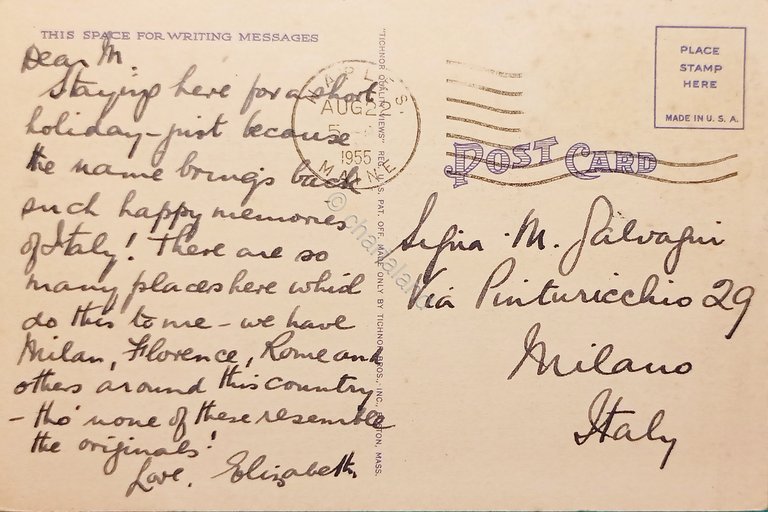 THIS SPACE FOR WRITING MESSAGES
Dear M.
Staying here for a short
holiday - just because
the name brings back
such happy memories
of Italy! There are so
many places here which
do this to me - we have
Milan, Florence, Rome and
others around this country
- tho' none of these resemble
the originals!
Love, Elizabeth.
"TICHNOR QUALITY VIEWS" REG. U. S. PAT. OFF. MADE ONLY BY TICHNOR BROS., INC., BOSTON, MASS.
NAPLES.
AUG 22
5
1955
MAINE
PLACE
STAMP
HERE
MADE IN U. S. A.
POST CARD
M. Salvagni
Via Pinturicchio 29
Milano
Italy